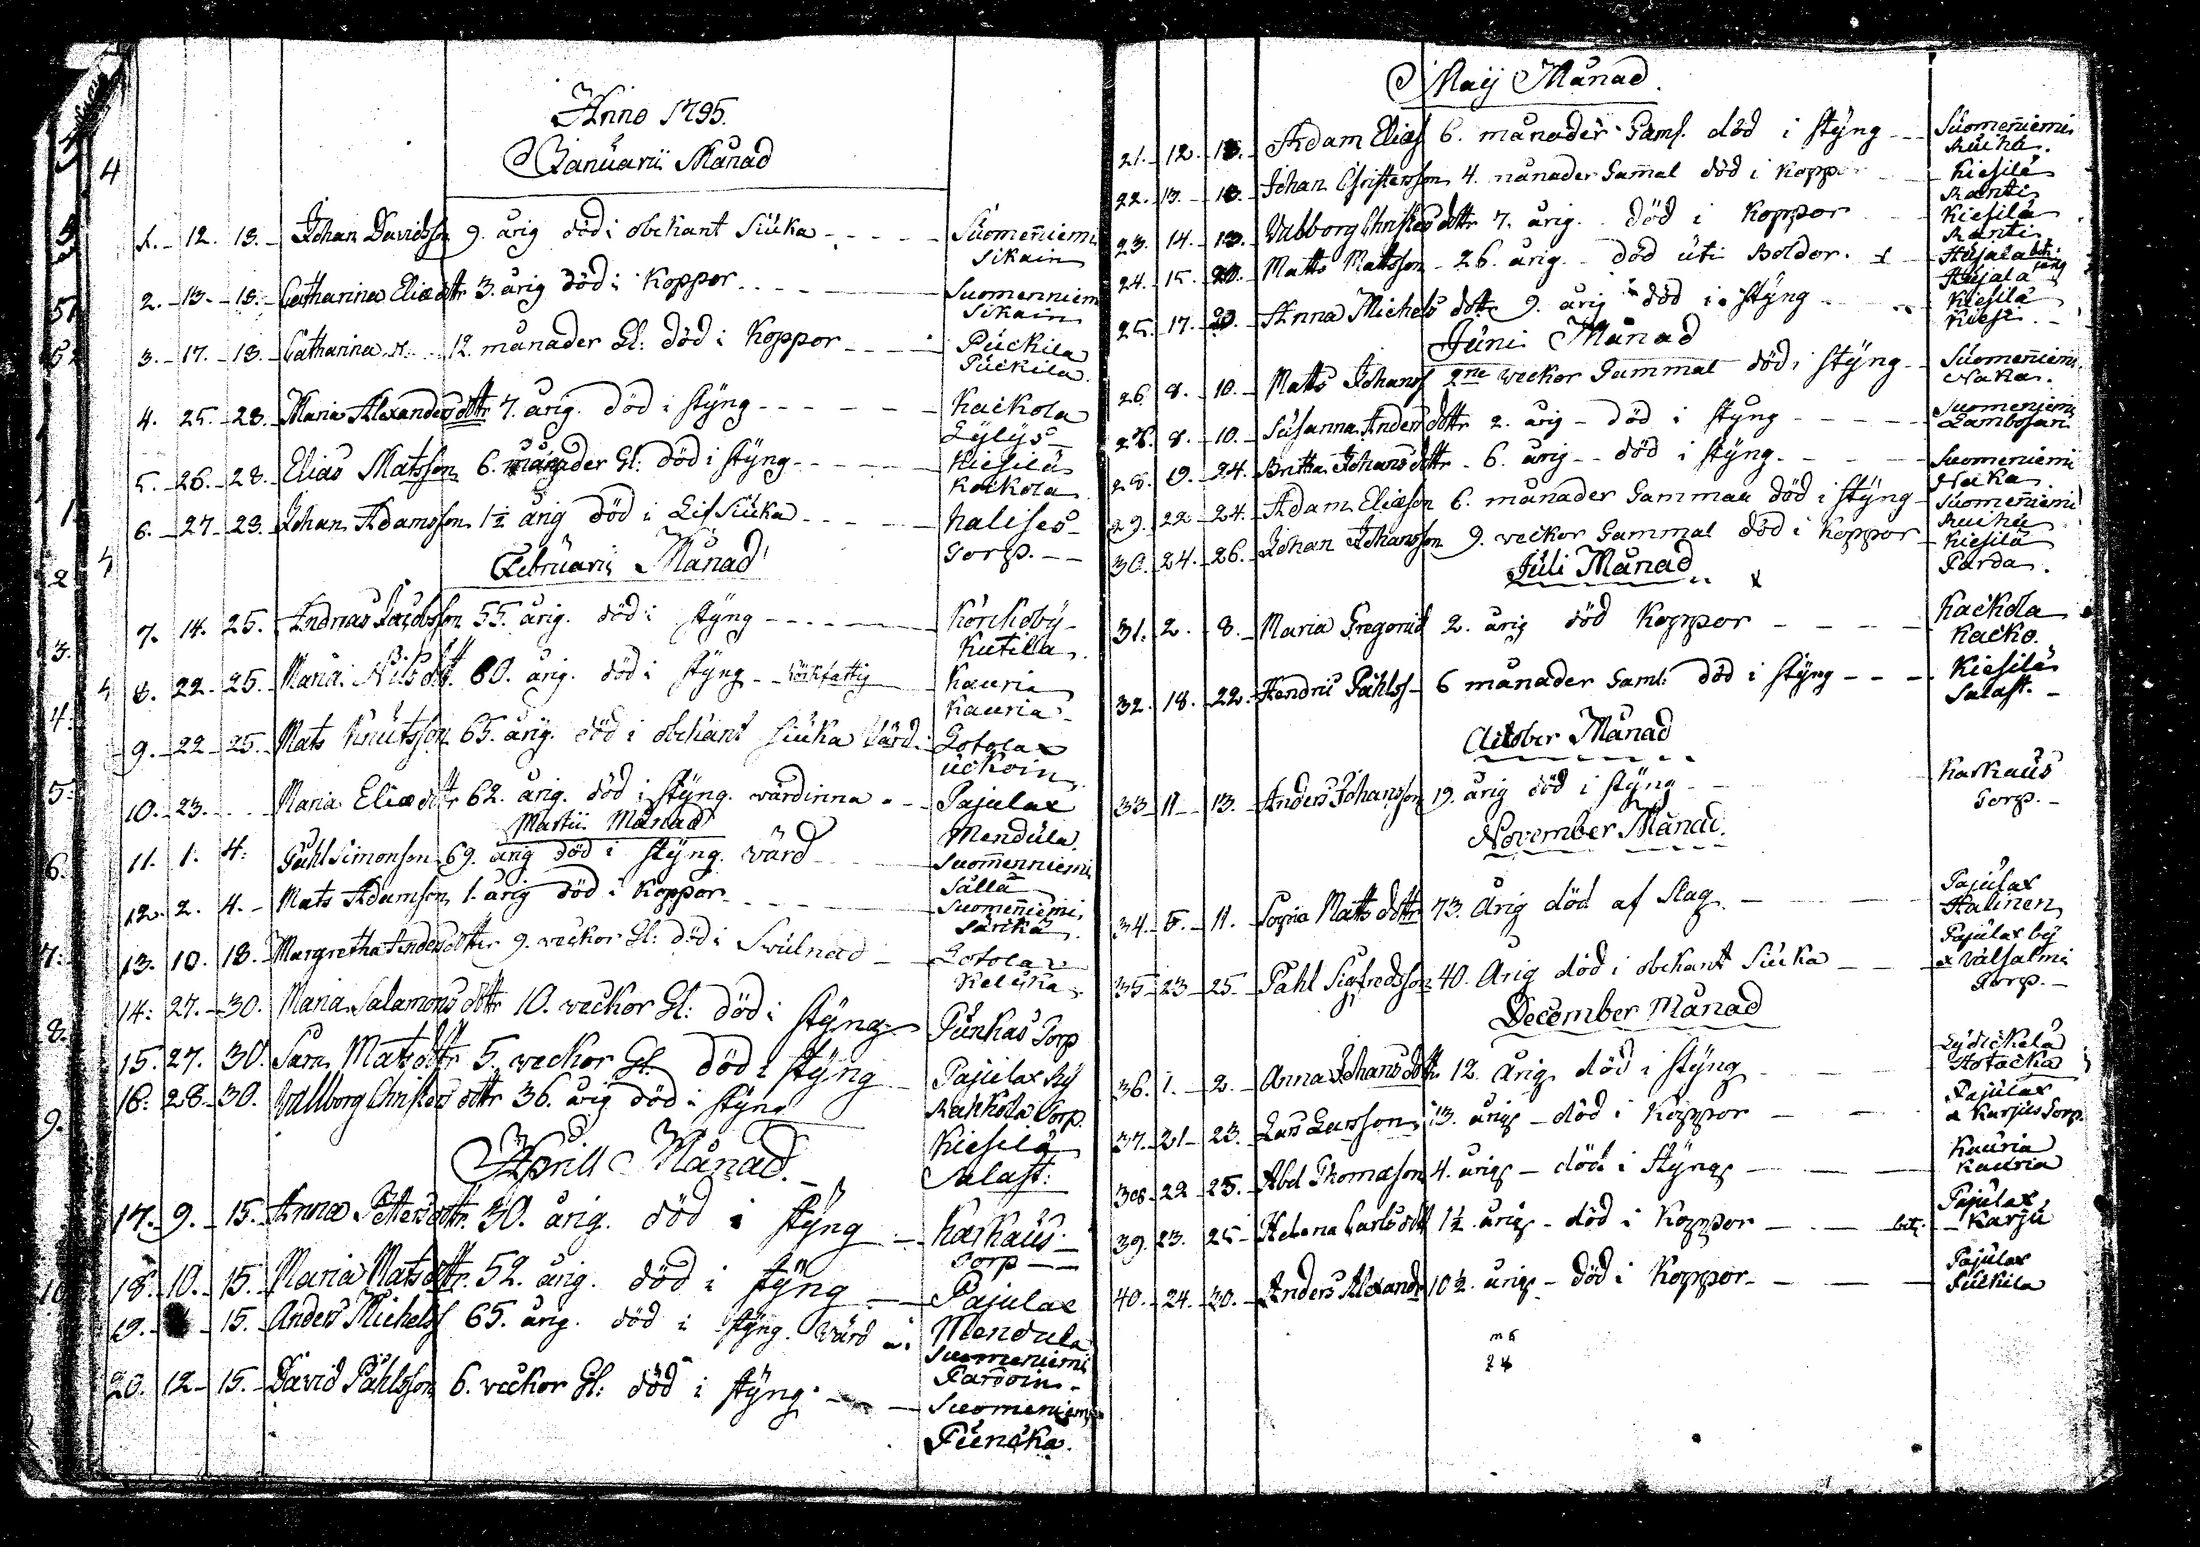 Anno 1795.
Januarii Månad
1. 12. 18. Johan Davidsson 9. årig död i obekant Siuka Suomeñiemi
Sikain
2. 13. 18. Catharina Eliædottr 3. årig död i Koppor Suomenniem
Sikain
3. 17. 18. Catharina 12. månader Gl: död i Koppor Puckila
Puckila.
4. 25. 28. Maria Alexandersdottr 7. årig. död i styng Kackola
Lylys
5. 26. 28. Elias Matsson 6. månader Gl: död i styng Kiesilä
Kockola
6. 27. 28. Johan Adamsson 1½ årig död i Lifsiuka
Torp.
Februarii Månad
7. 14. 25. Andreas Jacobsson 55. årig. död i styng
Kutilla.
8. 22. 25. Maria Nilsdott. 60. årig. död i styng Kauria
Kauria
9. 22. 25. Mats Knutsson 65. årig. död i obekant siuka Värd: Gotolax
Uckoin
10. 23. Maria Eliædottr 62. årig. död i styng. värdinna Pajulax
Martii Månad Mendula.
11. 1. 4. Påhl Simonson 69. årig död i styng. värd Suomenniemi
Sälla
12. 2. 4. Mats Adamson 1. årig död i Koppor Suomeñiemi
Särkä
13. 10. 18. Margretha Andersdotter 9. veckor Gl: död i Swulnad Gotolax
14. 27. 30. Maria Salamonsdottr 10. veckor Gl: död i styng Punkas Torp
15. 27. 30. Sara Matsdottr 5. veckor Gl. död i styng Pajulax By
16. 28. 30. Vallborg Christersdottr 36. årig död i styng Rackola Torp.
Kiesilä
April Månad.
Salast:
17. 9. 15. Anna Pettersdottr. 30. årig. död i styng Karkaus
Torp
18. 10. 15. Maria Matsdottr. 52. årig. död i styng Pajulax
19. 15. Anders Michelss 65. årig. död i styng. Värd Mendula
Suomeniemi
Pardoin
20. 12. 15. David Påhlsson 6. veckor Gl: död i styng. Suomeniemi
Puncka.
Maij Månad.
21. 12. 18. Adam Elias 6. månader Gaml. död i styng Suomeñiemi
Rucha.
22. 13. 18. Johan Christersson 4. månader Gam̃al död i Koppor Kiesilä
Ranti
23. 14. 18. Valborg Christersdottr 7. årig. död i Koppor Kiesilä
Ranti
24. 15. 20. Matts Mattsson 26. årig. död uti Boldor.
25. 17. 20. Anna Michelsdottr 9. årig död i styng Kiesilä
Kiesi
Juni Månad
26. 8. 10. Matts Johanss 2ne veckor Gammal död i styng Suomeñiemi
Naka.
27. 8. 10. Susanna Andersdottr 2. årig död i styng Suomeniemi
Lambosari
28. 9. 24. Britta Johansdottr 6. årig död i styng. Suomeniemi
Naka
29. 22. 24. Adam Eliæson 6. månader Gammal död i styng Suomeñiemi
Rucha
30. 24. 26. Johan Johansson 9. veckor Gammal död i Koppor Kiesilä
Parda.
Juli Månad
31. 2. 8. Maria Gregorid 2. årig död Koppor Kackola
Kacko.
32. 18. 22. Hendric Påhlss 6 månader Gaml: död i styng Kiesilä
Salast.
October Månad
33 11 13. Anders Johansson 19. årig död i styng Karkaus
Torp.
November Månad.
34. 5. 11. Sophia Mattsdottr 73. Årig död af Slag. Pajulax
Haunen
35 23 25 Pahl Sigfredsson 40. Årig död i obekant Siuka Pajulax by
a Valsalmi
Torp.
December Månad
36. 1. 2. Anna Johansdottr 12. Årig död i styng Lydickelä
Hotacka
37. 21 23. Lars Larsson 13. årig död i Koppor Pajulax
a Karjus Torp.
38. 22 25. Abel Thomason 4. årig död i styng Kauria
Kauria
39. 23. 25 Helena Carlsdott 1½ årig död i Koppor Pajulax
Karju
40. 24. 30. Anders Alexandr 10½. årig död i Koppor Pajulax
Puckila